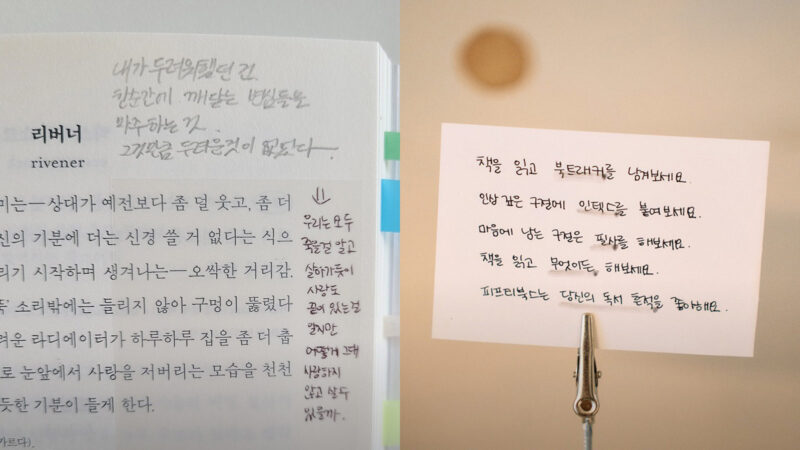 내가 두려워했던 건
한순간에 깨닫는 변심들을
마주하는 것.
그것만큼 두려운것이 없었다—.
리버너
rivener
미는—상대가 예전보다 좀 덜 웃고, 좀 더
신의 기분에 더는 신경 쓸 거 없다는 식으
리기 시작하며 생겨나는—오싹한 거리감.
뚝' 소리밖에는 들리지 않아 구멍이 뚫렸다
려운 라디에이터가 하루하루 집을 좀 더 춥
로 눈앞에서 사랑을 저버리는 모습을 천천
듯한 기분이 들게 한다.
가르다).
우리는 모두
죽을걸 알고
살아가듯이
사랑도
끝이 있는걸
알지만
어떻게 그대
사랑하지
않고 살 수
있을까.
책을 읽고 북트래커를 남겨보세요.
인상 깊은 구절에 인덱스를 붙여보세요.
마음에 남는 구절은 필사를 해보세요.
책을 읽고 무엇이든 해보세요.
피프티북스는 당신의 독서 흔적을 좋아해요.